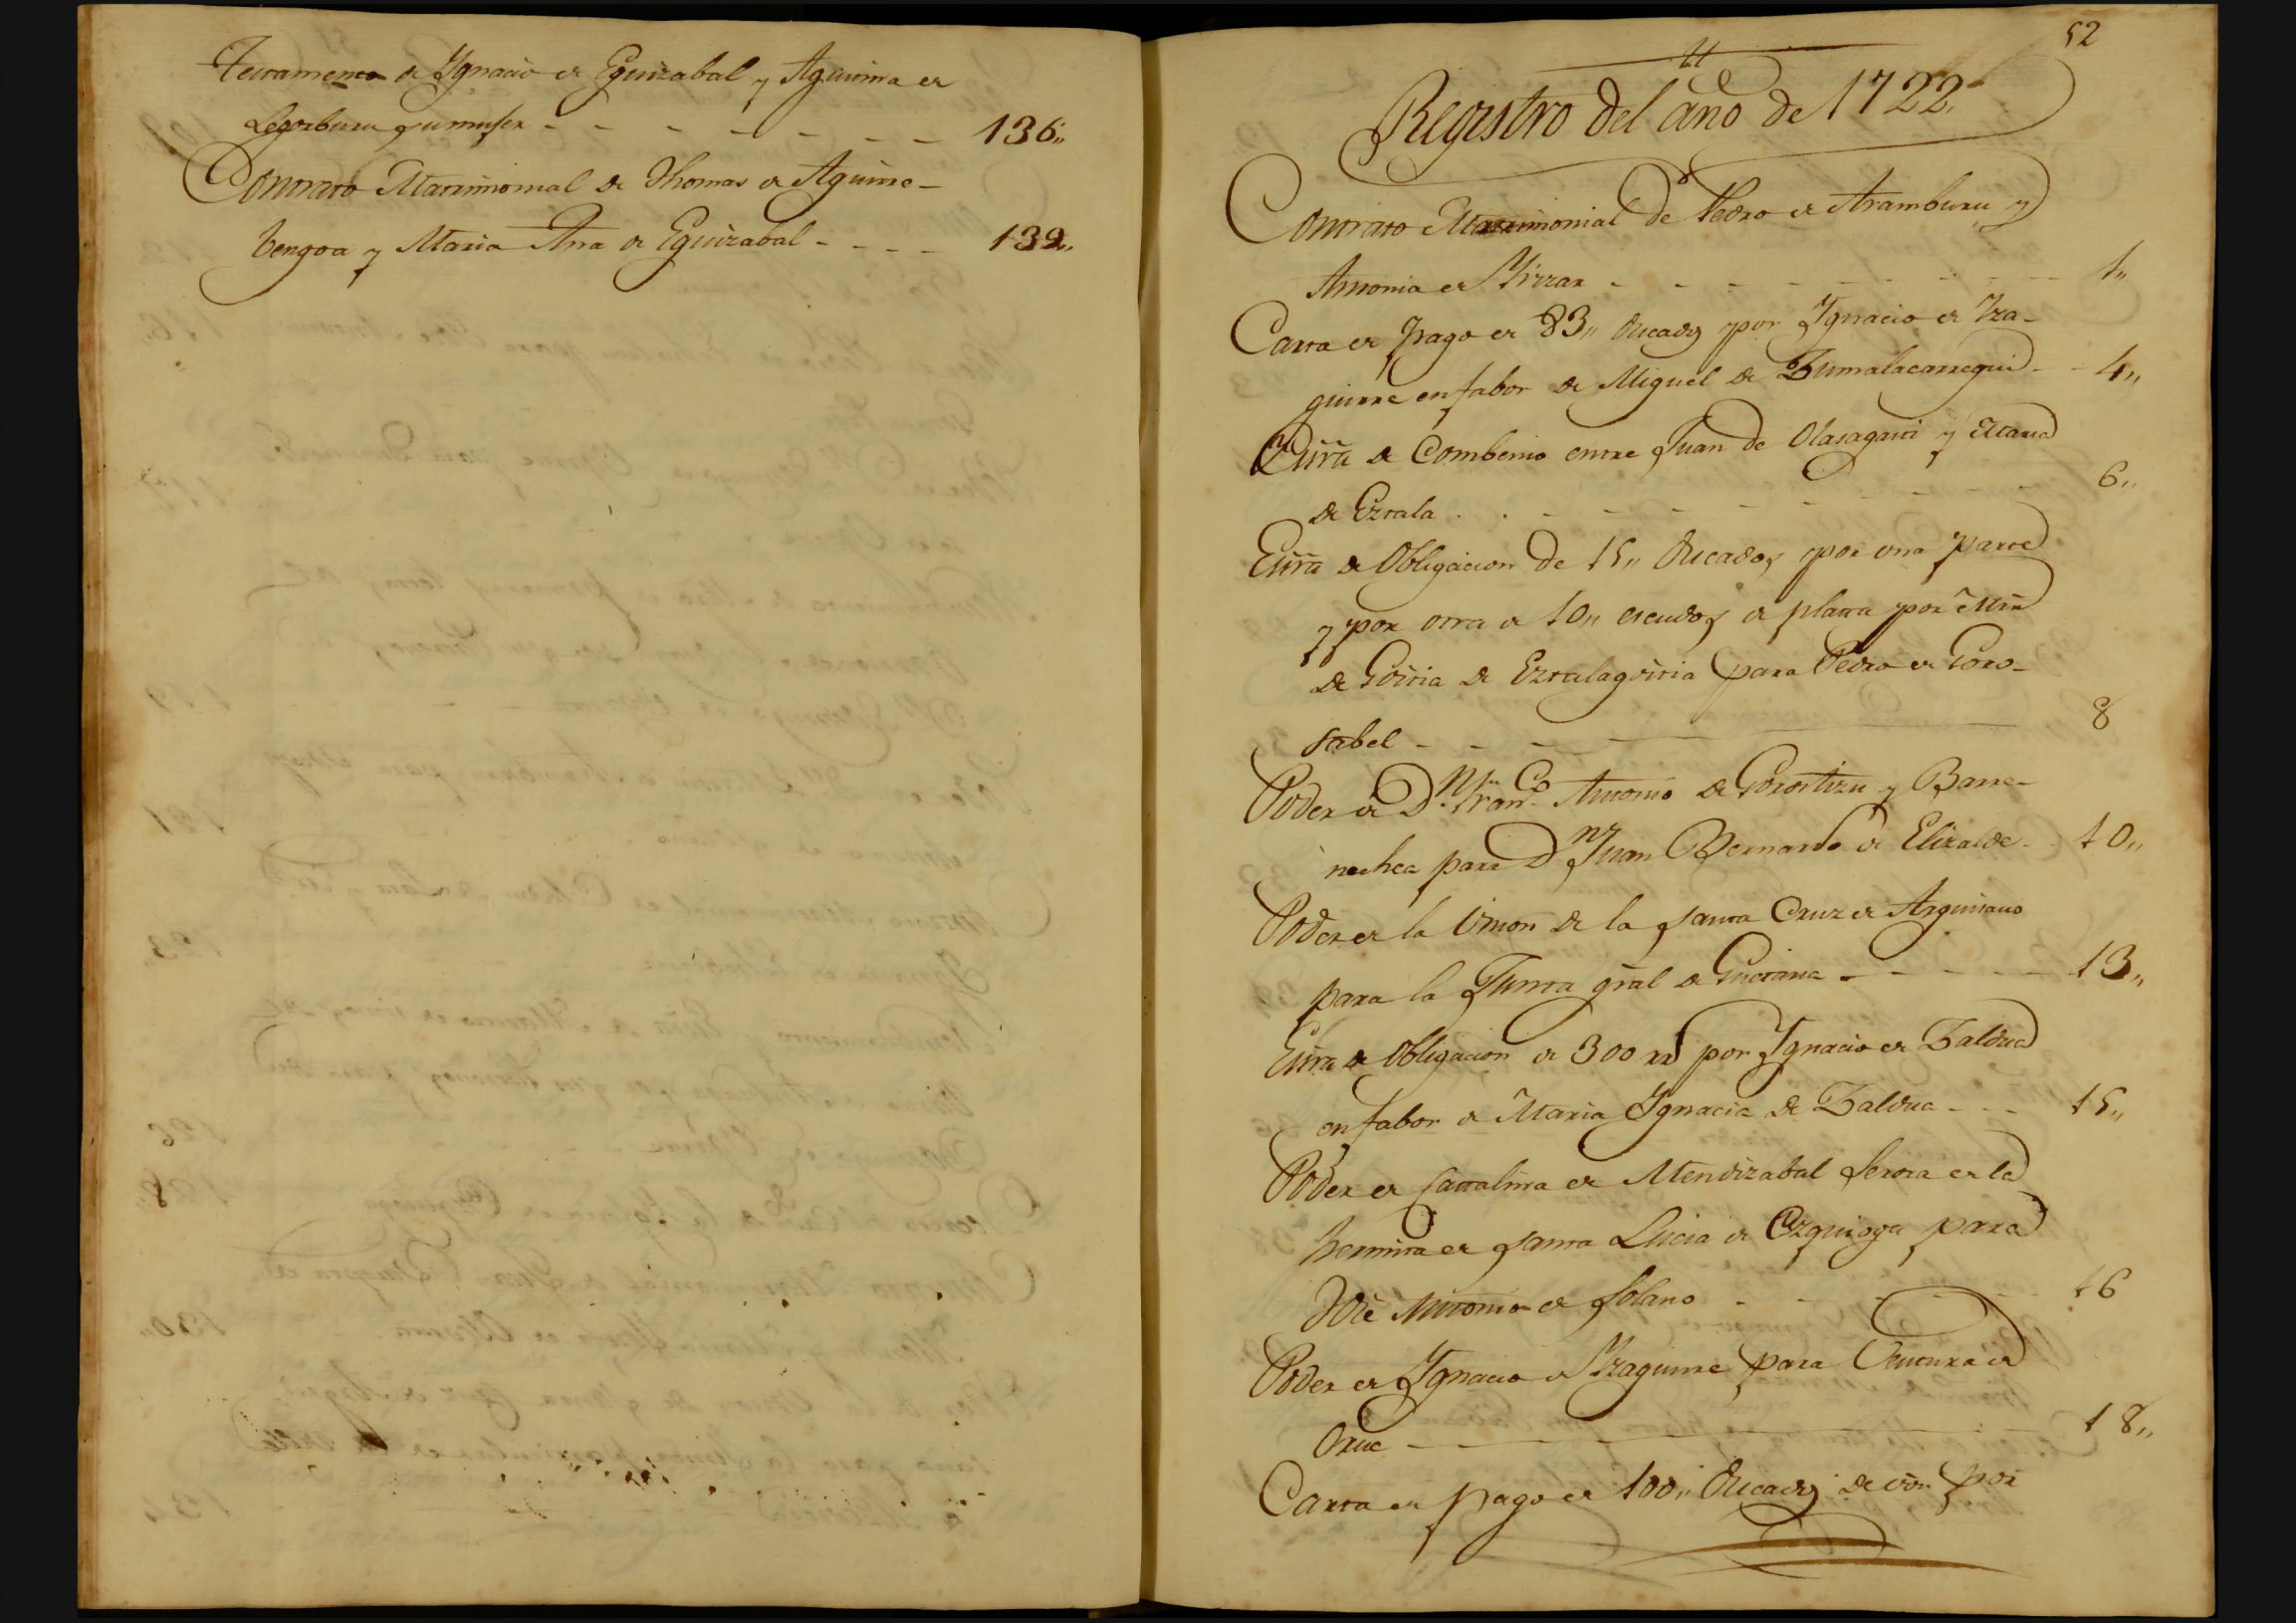 Testamento de Ygnacio de Eguizabal y Agustina de
Legorburu su muger - - - - - - - 136,,
Contrato Matrimonial de Thomas de Aguirre-
bengoa y Maria Ana de Eguizabal - - - - 139,,
52
Registro del año de 1722,,
Contrato Matrimonial de Pedro de Aramburu y
Antonia de Yrizar - - - - - - - - 1,,
Carta de pago de 83,, ducados por Ygnacio de Yza-
guirre en fabor de Miguel de Zumalacarregui - - 4,,
Essrã de Combenio entre Juan de Olasagasti y Maria
de Eztala - - - - - - - - 6,,
Essrã de Obligacion de 15,, ducados por una parte
y por otra de 10,, escudos de platta por Mrã
de Goitia de Eztalagoitia para Pedro de Goro-
sabel - - - - 8
Poder de Dn Franco Antonio de Gorostizu y Barre-
nechea para Dn Juan Bernardo de Elizalde - 10,,
Poder de la Union de la santa Cruz de Arguisano
para la Junta gral de Guetaria - - - - - 13,,
Essrã de Obligacion de 300 rs por Ygnacio de Zaldua
en fabor de Maria Ygnacia de Zaldua - - - 15,,
Poder de Cattalina de Mendizabal serora de la
hermita de santa Lucia de Ezquioga para
Antonio de Solano - - - - - 16
Poder de Ygnacio de Yzaguirre para Ventura de
Orue - - - - - - 18,,
Carta de pago de 100,, ducados de von por